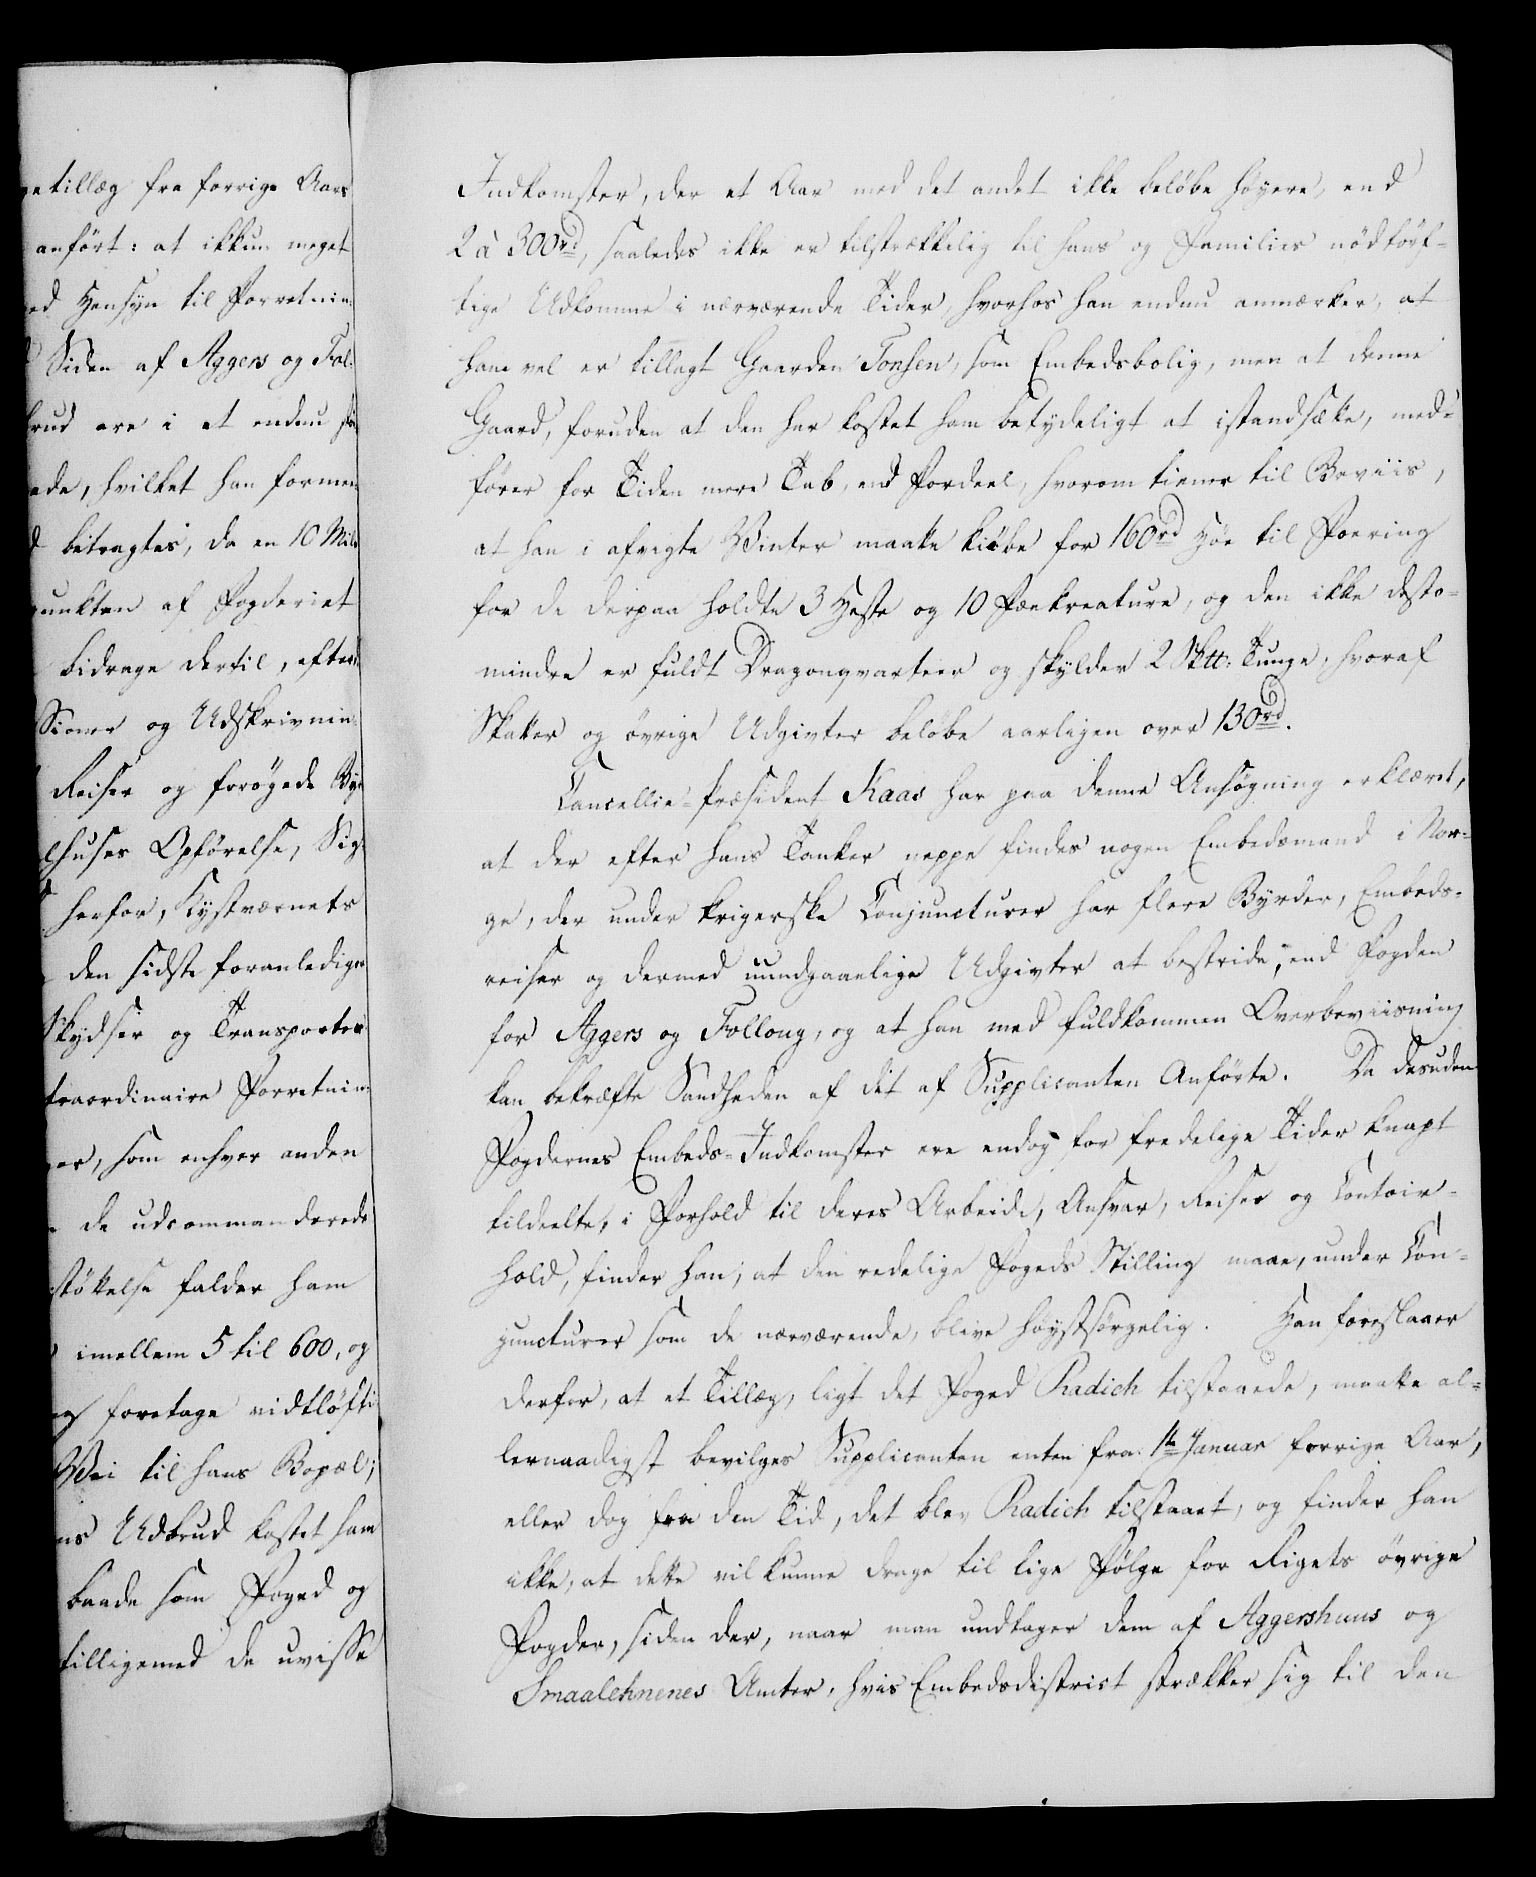 getillæg fra forrige Aars
anført: at ikkun meget
ed Hensyn til Forretnin:
Siden af Aggers og Fol:
brud ere i et endnu
ede, hvilket han formen
betragtes, da en 10 Mile
punkten af Fogderiet
bidrage dertil, efter
Sioner og Udskrivnin:
Reiser og forøgede By
lhuses Opførelse, Sig
herfor, Kystværnets
den sidste foranledige
Skydser og Transporter
traordinaire Forretnin:
er, som enhver anden
de udcommanderede
støkelse falder ham
imellem 5 til 600, og
foretage vidtløfti
Vei til hans Bopæl;
ns Udbrud kostet ham
baade som Foged og
tilligemed de uvisse
Indkomster, der et Aar med det andet ikke beløbe høyere, end
2 à 300rd, saaledes ikke er tilstrækkelig til hans og Families nødtörf-
tige Udkomme i nærværende Tider, hvorhos han endnu anmærker, at
ham vel er tillagt Gaarden Tonsen, som Embedsbolig, men at denne
Gaard, foruden at den har kostet ham betydeligt at istandsætte, med-
fører for Tiden mere Tab, end Fordeel, hvorom tiener til Beviis,
at han i afvigte Vinter maatte kiøbe for 160rd Høe til Foering
for de derpaa holdte 3 Heste og 10 Fæekreature, og den ikke desto-
mindre er fuldt Dragonqvarteer og skylder 2 Sktt: Tunge, hvoraf
Skatter og øvrige Udgivter beløbe aarligen over 130rd.
Cancellie-Præsident Kaas har paa denne Ansøgning erklæret,
at der efter hans Tanker neppe findes nogen Embedsmand i Nor-
ge, der under krigerske Conjuncturer har flere Byrder, Embeds-
reiser og dermed uundgaaelige Udgivter at bestride, end Fogden
for Aggers og Follong, og at han med fuldkommen Overbeviisning
kan bekræfte Sandheden af det af Supplicanten Anførte. Da desuden
Fogdernes Embeds-Indkomster ere endog for fredelige Tider knapt
tildeelte, i Forhold til deres Arbeide, Ansvar, Reiser og Contoir-
hold, finder han, at den redelige Fogeds Stilling maae, under Con-
juncturer som de nærværende, blive høystsørgelig. Han foreslaaer
derfor, at et Tillæg, ligt det Foged Radich tilstaaede, maatte al-
lernaadigst bevilges Supplicanten enten fra 1te Januar forrige Aar,
eller dog fra den Tid, det blev Radich tilstaaet, og finder han
ikke, at dette vil kunne drage til lige Følge for Rigets øvrige
Fogder, siden der, naar man undtager dem af Aggershuus og
Smaalehnenes Amter, hvis Embedsdistrict strækker sig til den